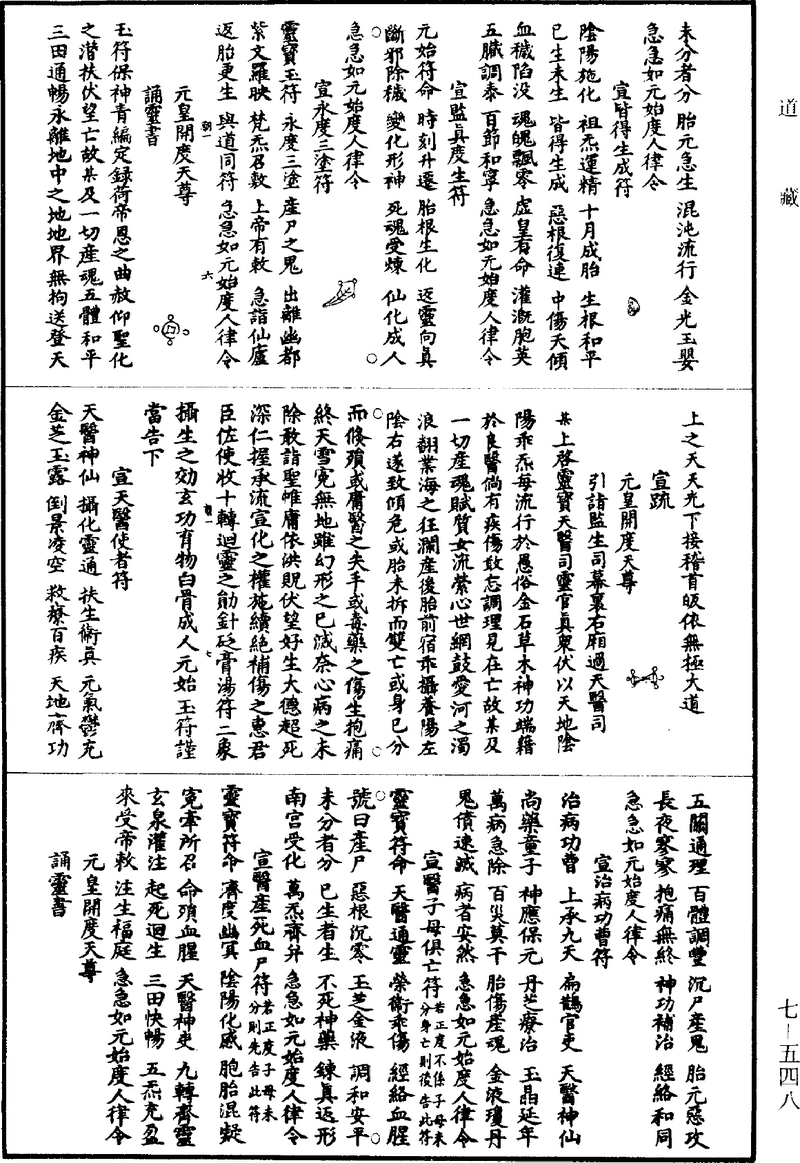 道藏
未分者分 胎元急生 混沌流行 金光玉嬰
急急如元始度人律令
宣皆得生成符
陰陽施化 祖炁運精 十月成胎 生根和平
已生未生 皆得生成 惡根復連 中傷天傾
血穢陷没 魂魄飄零 虛皇有命 灌溉胞英
五臟調泰 百節和寧 急急如元始度人律令
宣監真度生符
元始符命 時刻升遷 胎根生化 返靈向真
斷邪除穢 變化形神 死魂受煉 仙化成人
急急如元始度人律令
宣永度三塗符
靈寶玉符 永度三塗 產尸之鬼 出離幽都
紫文羅映 梵炁召敷 上帝有敕 急詣仙廬
返胎更生 與道同符 急急如元始度人律令
元皇開度天尊
誦靈書
玉符保神青編定録荷帝恩之曲赦仰聖化
之潛扶伏望亡故某及一切産魂五體和平
三田通暢永離地中之地地界無拘送登天
上之天天光下接稽首皈依無極大道
宣疏
元皇開度天尊
引詣監生司幕裏右廂過天醫司
某上啓靈寶天醫司靈官真衆伏以天地陰
陽乖炁每流行於愚俗金石草木神功端藉
於良醫倘有疾傷敢忘調理見在亡故某及
一切産魂賦質女流縈心世網鼓愛河之濁
浪翻業海之狂瀾産後胎前宿乖攝養陽左
陰右遂致傾危或胎未拆而雙亡或身已分
而倏殞或庸醫之失手或毒藥之傷生抱痛
終天雪冤無地雖幻形之已滅奈心病之未
除敢詣聖帷庸依洪貺伏望好生大德超死
深仁握承流宣化之權施續絶補傷之惠君
臣佐使收十轉迴靈之勛針砭膏湯符二象
攝生之効玄功育物白骨成人元始玉符謹
當告下
宣天醫使者符
天醫神仙 攝化靈通 扶生衛真 元氣鬱充
金芝玉露 倒景凌空 救療百疾 天地齊功
五關通理 百體調豐 沉尸產鬼 胎元惡攻
長夜寥寥 抱痛無終 神功補治 經絡和同
急急如元始度人律令
宣治病功曹符
治病功曹 上承九天 扁鵲官吏 天醫神仙
尚藥童子 神應保元 丹芝療治 玉晶延年
萬病急除 百災莫干 胎傷産魂 金液瓊丹
鬼債速滅 病者安然 急急如元始度人律令
宣醫子母俱亡符 若正度不係子母未分身亡則後告此符
靈寶符命 天醫通靈 榮衛乖傷 經絡血腥
號曰產尸 惡根沉零 玉芝金液 調和安平
未分者分 已生者生 不死神藥 鍊真返形
南宮受化 萬炁齊并 急急如元始度人律令
宣醫産死血尸符 若正度子母未分則先告此符
靈寶符命 濟度幽冥 陰陽化感 胞胎混凝
冤牽所召 命殞血腥 天醫神吏 九轉齊靈
玄泉灌注 起死迴生 三田快暢 五炁充盈
來受帝敕 注生福庭 急急如元始度人律令
元皇開度天尊
誦靈書
七-五四八